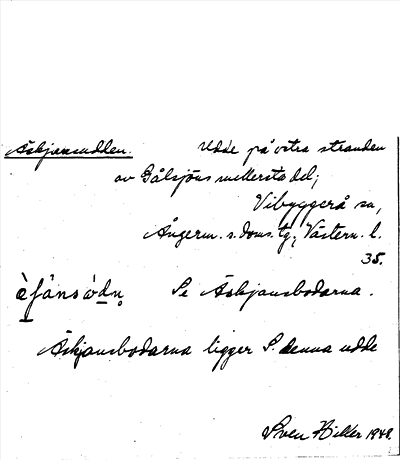 Äskjansudden. Udde på östra stranden
av Gålsjöns mellersta del;
Vibyggerå sn,
Ångerm. s. doms. tg, Västern. l.
35.
Se Äskjansbodarna.
Äskjansbodarna ligger S. denna udde
Sven Hiller 1948.